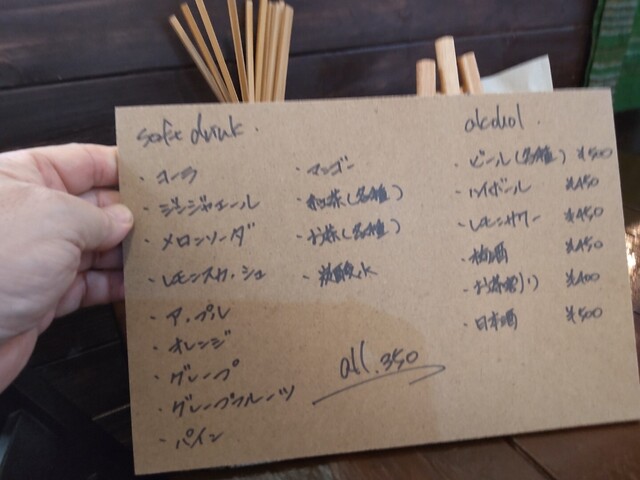 soft drink.
・コーラ
・ジンジャエール
・メロンソーダ
・レモンスカッシュ
・アップル
・オレンジ
・グレープ
・グレープフルーツ
・パイン
・マンゴー
・紅茶(各種)
・お茶(各種)
・炭酸水
all.350
alcohol.
・ビール(各種) ¥500
・ハイボール ¥450
・レモンサワー ¥450
・梅酒 ¥450
・お茶割り ¥400
・日本酒 ¥500